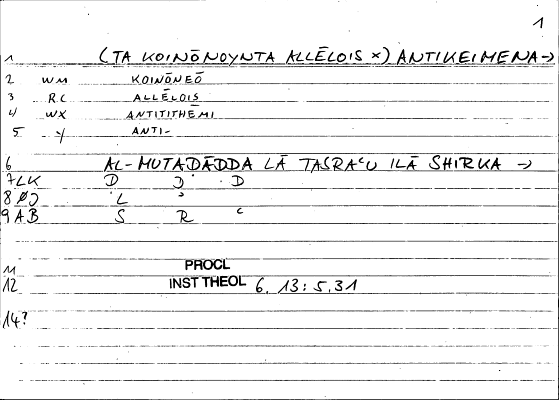 1
1 (TA KOINŌNOYNTA ALLĒLOIS ×) ANTIKEIMENA→
2 WM KOINŌNEŌ
3 RC ALLĒLOIS
4 WX ANTITITHĒMI
5 Y ANTI-
6 AL-MUTADĀDDA LĀ TASRAʿU ILĀ SHIRKA →
7 LK D D D
8 ØJ L ʾ
9 AB S R ʿ
11 PROCL
12 INST THEOL 6. 13: 5.31
14?